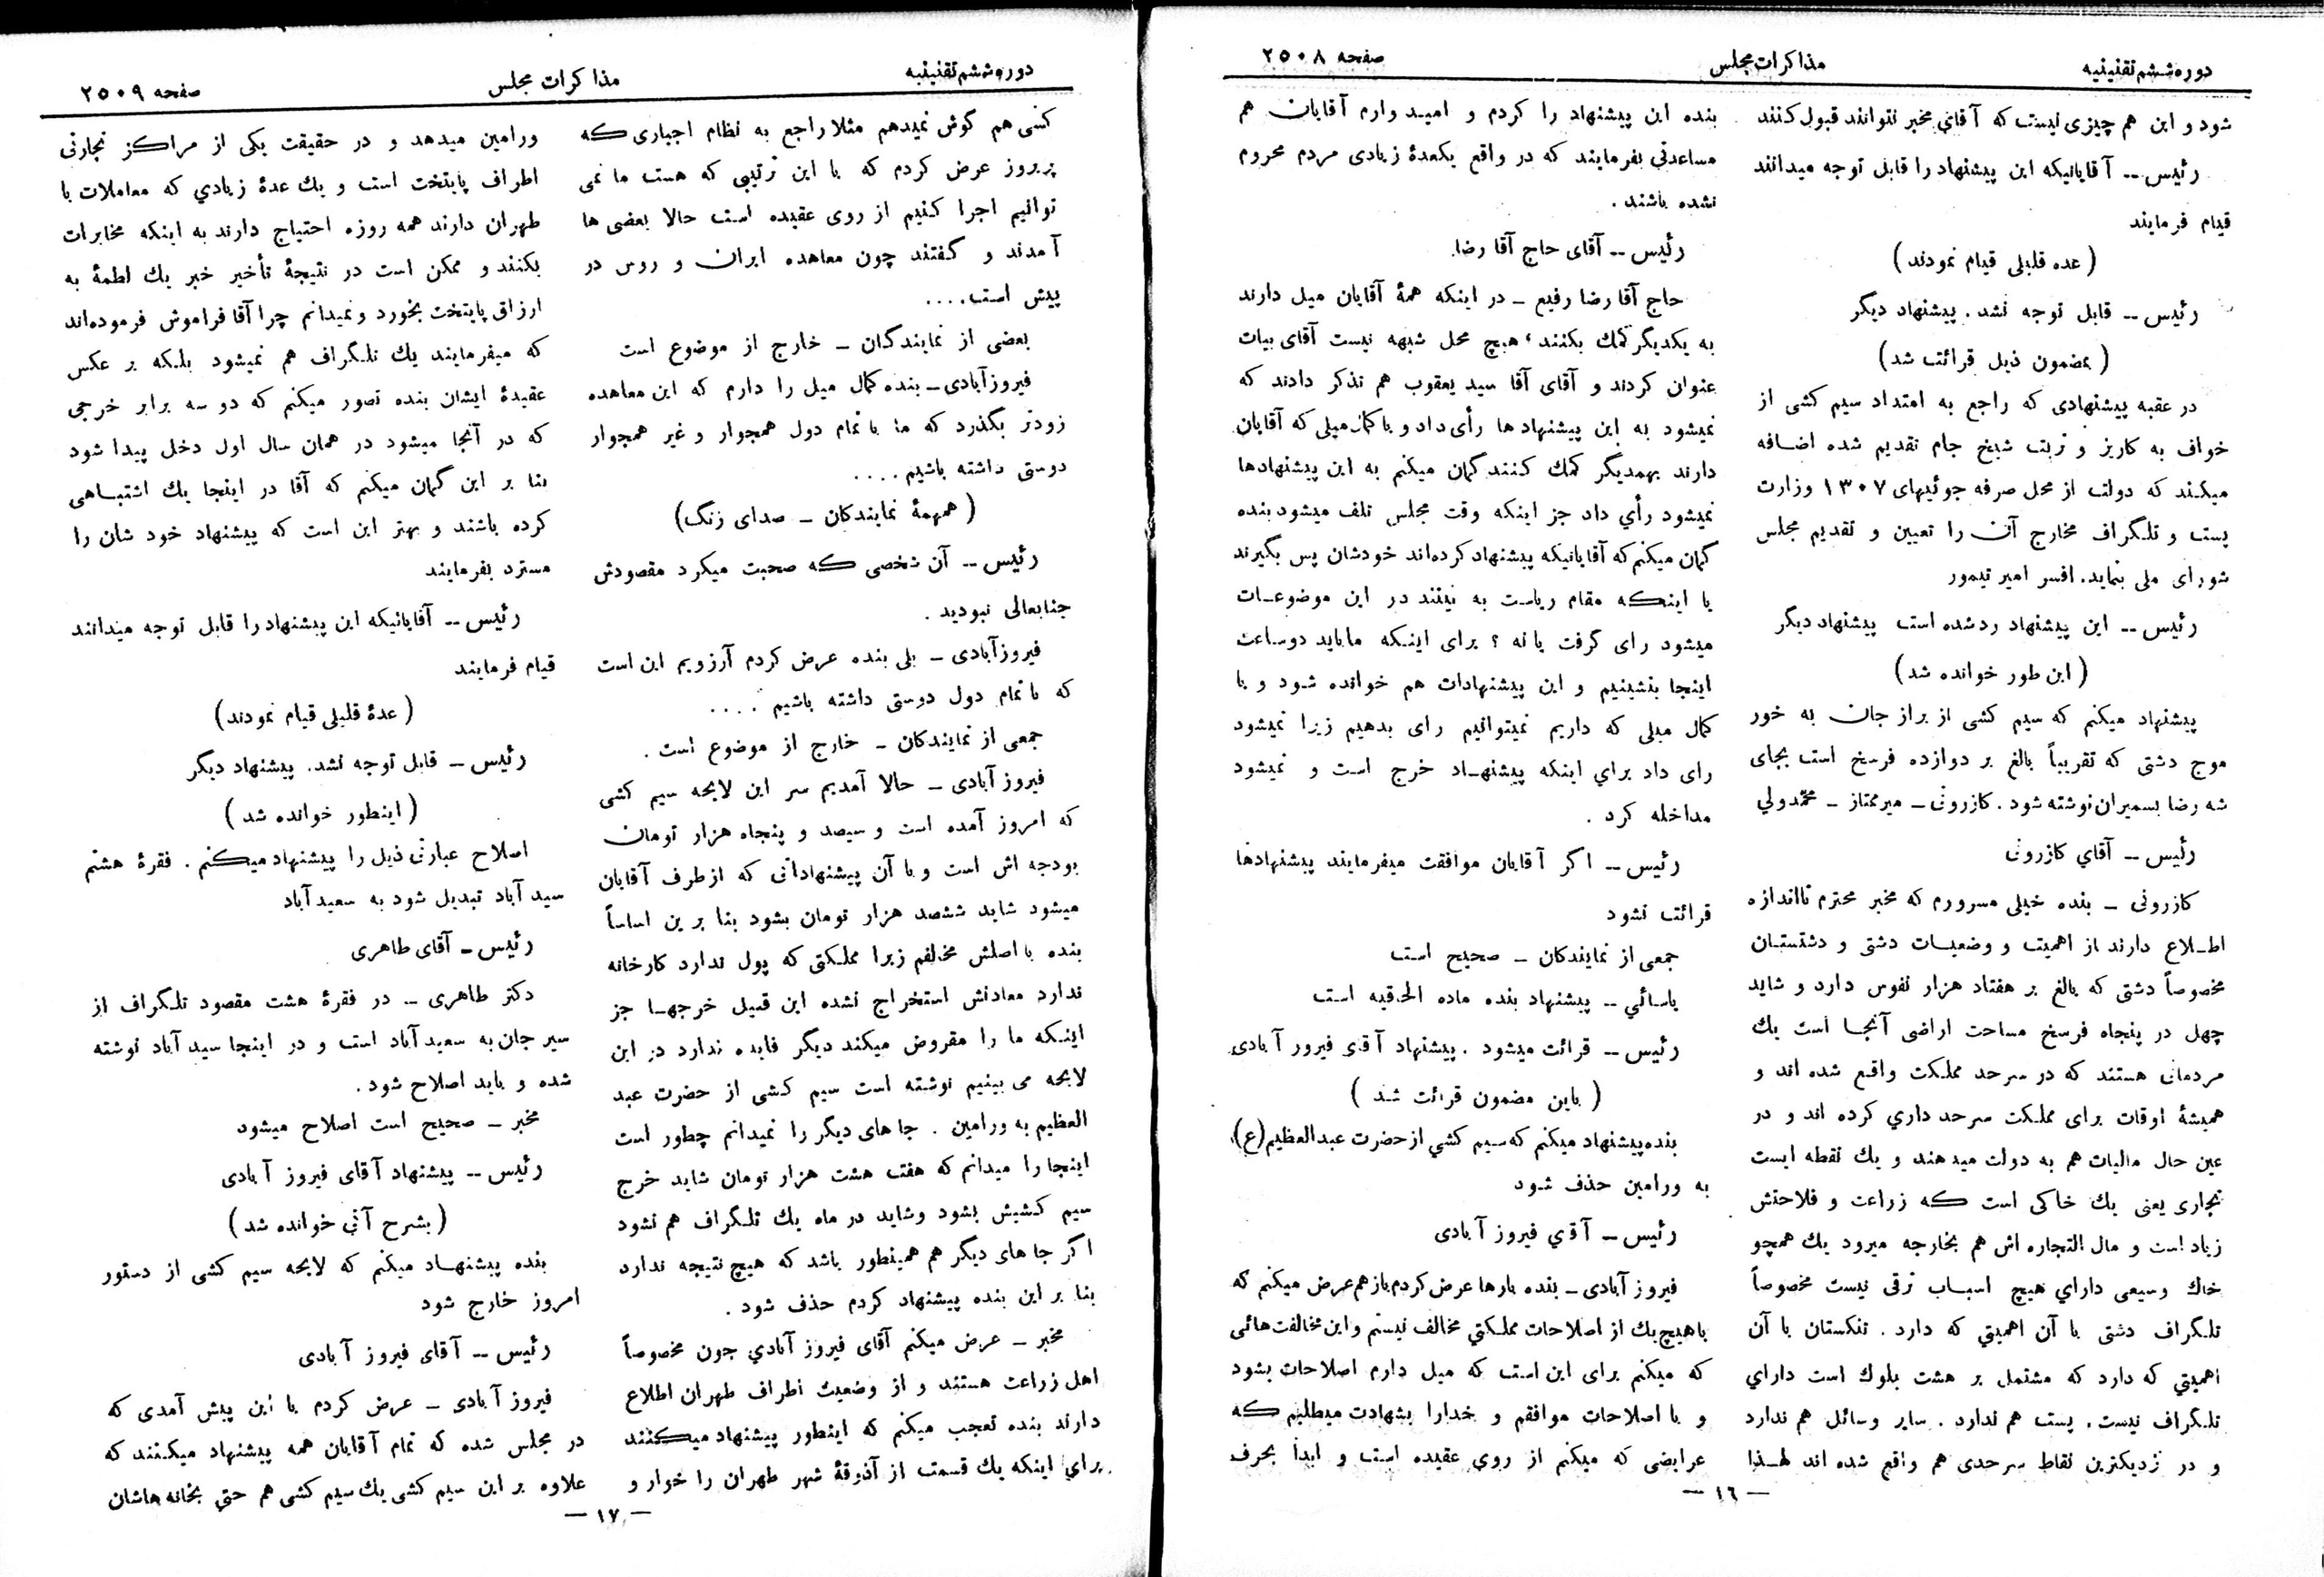 دوره ششم تقنینیه
مذاکرات مجلس
صفحه ۲۵۰۸
شود و این هم چیزی نیست که آقای مخبر نتوانند قبول کنند
رئیس -- آقایانیکه این پیشنهاد را قابل توجه میدانند
قیام فرمایند
(عده قلیلی قیام نمودند)
رئیس -- قابل توجه نشد. پیشنهاد دیگر
(بمضمون ذیل قرائت شد)
در عقبه پیشنهادی که راجع به امتداد سیم کشی از
خواف به کاریز و تربت شیخ جام تقدیم شده اضافه
میکند که دولت از محل صرفه جوئیهای ۱۳۰۷ وزارت
پست و تلگراف مخارج آن را تعیین و تقدیم مجلس
شورای ملی بنماید. افسر امیر تیمور
رئیس -- این پیشنهاد رد شده است پیشنهاد دیگر
(این طور خوانده شد)
پیشنهاد میکنم که سیم کشی از براز جان به خور
موج دشتی که تقریباً بالغ بر دوازده فرسخ است بجای
شه رضا بسمیران نوشته شود. کازرونی - میرممتاز - محمدولی
رئیس -- آقای کازرونی
کازرونی - بنده خیلی مسرورم که مخبر محترم تااندازه
اطلاع دارند از اهمیت و وضعیات دشتی و دشتستان
مخصوصاً دشتی که بالغ بر هفتاد هزار نفوس دارد و شاید
چهل در پنجاه فرسخ مساحت اراضی آنجا است یك
مردمانی هستند که در سرحد مملکت واقع شده اند و
همیشهٔ اوقات برای مملکت سرحد داری کرده اند و در
عین حال مالیات هم به دولت میدهند و یك نقطه ایست
تجاری یعنی یك خاکی است که زراعت و فلاحتش
زیاد است و مال التجاره اش هم بخارجه میرود یك همچو
خاك وسیعی دارای هیچ اسباب ترقی نیست مخصوصاً
تلگراف دشتی با آن اهمیتی که دارد. تنگستان با آن
اهمیتی که دارد که مشتمل بر هشت بلوك است دارای
تلگراف نیست. پست هم ندارد. سایر وسائل هم ندارد
و در نزدیکترین نقاط سرحدی هم واقع شده اند لهذا
بنده این پیشنهاد را کردم و امید وارم آقایان هم
مساعدتی بفرمایند که در واقع یکعدهٔ زیادی مردم محروم
نشده باشند.
رئیس -- آقای حاج آقا رضا.
حاج آقا رضا رفیع - در اینکه همهٔ آقایان میل دارند
به یکدیگر کمك بکنند، هیچ محل شبهه نیست آقای بیات
عنوان کردند و آقای آقا سید یعقوب هم تذکر دادند که
نمیشود به این پیشنهاد ها رأی داد و با کمال میلی که آقایان
دارند بهمدیگر کمك کنند گمان میکنم به این پیشنهادها
نمیشود رأي داد جز اینکه وقت مجلس تلف میشود بنده
گمان میکنم که آقایانیکه پیشنهاد کرده‌اند خودشان پس بگیرند
یا اینکه مقام ریاست به بینند در این موضوعات
میشود رای گرفت یا نه؟ برای اینکه ماباید دوساعت
اینجا بنشینیم و این پیشنهادات هم خوانده شود و با
کمال میلی که داریم نمیتوانیم رای بدهیم زیرا نمیشود
رای داد برای اینکه پیشنهاد خرج است و نمیشود
مداخله کرد.
رئیس -- اگر آقایان موافقت میفرمایند پیشنهادها
قرائت نشود
جمعی از نمایندگان - صحیح است
یاسائي -- پیشنهاد بنده ماده الحاقیه است
رئیس -- قرائت میشود. پیشنهاد آقای فیروز آبادی
(باین مضمون قرائت شد)
بنده پیشنهاد میکنم که سیم کشي از حضرت عبدالعظیم (ع)
به ورامین حذف شود
رئیس -- آقاي فیروز آبادی
فیروز آبادی - بنده بارها عرض کردم بازهم عرض میکنم که
باهیچ یك از اصلاحات مملکتي مخالف نیستم و این مخالفت هائی
که میکنم برای این است که میل دارم اصلاحات بشود
و با اصلاحات موافقم و خدارا بشهادت میطلبم که
عرایضی که میکنم از روي عقیده است و ابداً بحرف
— ١٦ —
دوره ششم تقنینیه
مذاکرات مجلس
صفحه ۲۵۰۹
کسی هم گوش نمیدهم مثلا راجع به نظام اجباری که
پریروز عرض کردم که با این ترتیبی که هست ما نمی
توانیم اجرا کنیم از روی عقیده است حالا بعضی ها
آمدند و گفتند چون معاهده ایران و روس در
پیش است....
بعضی از نمایندگان - خارج از موضوع است
فیروزآبادی - بنده کمال میل را دارم که این معاهده
زودتر بگذرد که ما با تمام دول همجوار و غیر همجوار
دوستی داشته باشیم....
(همهمهٔ نمایندگان - صدای زنگ)
رئیس -- آن شخصی که صحبت میکرد مقصودش
جنابعالی نبودید.
فیروزآبادی - بلی بنده عرض کردم آرزویم این است
که با تمام دول دوستی داشته باشیم....
جمعی از نمایندگان - خارج از موضوع است.
فیروز آبادی - حالا آمدیم سر این لایحه سیم کشی
که امروز آمده است و سیصد و پنجاه هزار تومان
بودجه اش است و با آن پیشنهاداتی که از طرف آقایان
میشود شاید ششصد هزار تومان بشود بنا بر ین اساساً
بنده با اصلش مخالفم زیرا مملکتی که پول ندارد کارخانه
ندارد معادنش استخراج نشده این قبیل خرجها جز
اینکه ما را مقروض میکند دیگر فایده ندارد در این
لایحه می بینیم نوشته است سیم کشی از حضرت عبد
العظیم به ورامین. جا های دیگر را نمیدانم چطور است
اینجا را میدانم که هفت هشت هزار تومان شاید خرج
سیم کشیش بشود وشاید در ماه یك تلگراف هم نشود
اگر جا های دیگر هم همینطور باشد که هیچ نتیجه ندارد
بنا بر این بنده پیشنهاد کردم حذف شود.
مخبر - عرض میکنم آقای فیروز آبادي چون مخصوصاً
اهل زراعت هستند و از وضعیت اطراف طهران اطلاع
دارند بنده تعجب میکنم که اینطور پیشنهاد میکنند
برای اینکه یك قسمت از آذوقهٔ شهر طهران را خوار و
ورامین میدهد و در حقیقت یکی از مراکز تجارتی
اطراف پایتخت است و یك عدهٔ زیادي که معاملات با
طهران دارند همه روزه احتیاج دارند به اینکه مخابرات
بکنند و ممکن است در نتیجهٔ تأخیر خبر یك لطمهٔ به
ارزاق پایتخت بخورد و نمیدانم چرا آقا فراموش فرموده‌اند
که میفرمایند یك تلگراف هم نمیشود بلکه بر عکس
عقیدهٔ ایشان بنده تصور میکنم که دو سه برابر خرجی
که در آنجا میشود در همان سال اول دخل پیدا شود
بنا بر این گمان میکنم که آقا در اینجا یك اشتباهی
کرده باشند و بهتر این است که پیشنهاد خود شان را
مسترد بفرمایند
رئیس -- آقایانیکه این پیشنهاد را قابل توجه میدانند
قیام فرمایند
(عدهٔ قلیلی قیام نمودند)
رئیس - قابل توجه نشد. پیشنهاد دیگر
(اینطور خوانده شد)
اصلاح عبارتی ذیل را پیشنهاد میکنم. فقرهٔ هشتم
سید آباد تبدیل شود به سعید آباد
رئیس - آقای طاهری
دکتر طاهری - در فقرهٔ هشت مقصود تلگراف از
سیر جان به سعید آباد است و در اینجا سید آباد نوشته
شده و باید اصلاح شود.
مخبر - صحیح است اصلاح میشود
رئیس -- پیشنهاد آقای فیروز آبادی
(بشرح آتی خوانده شد)
بنده پیشنهاد میکنم که لایحه سیم کشی از دستور
امروز خارج شود
رئیس -- آقای فیروز آبادی
فیروز آبادی - عرض کردم با این پیش آمدی که
در مجلس شده که تمام آقایان همه پیشنهاد میکنند که
علاوه بر این سیم کشی یك سیم کشی هم حتی بخانه هاشان
— ١٧ —